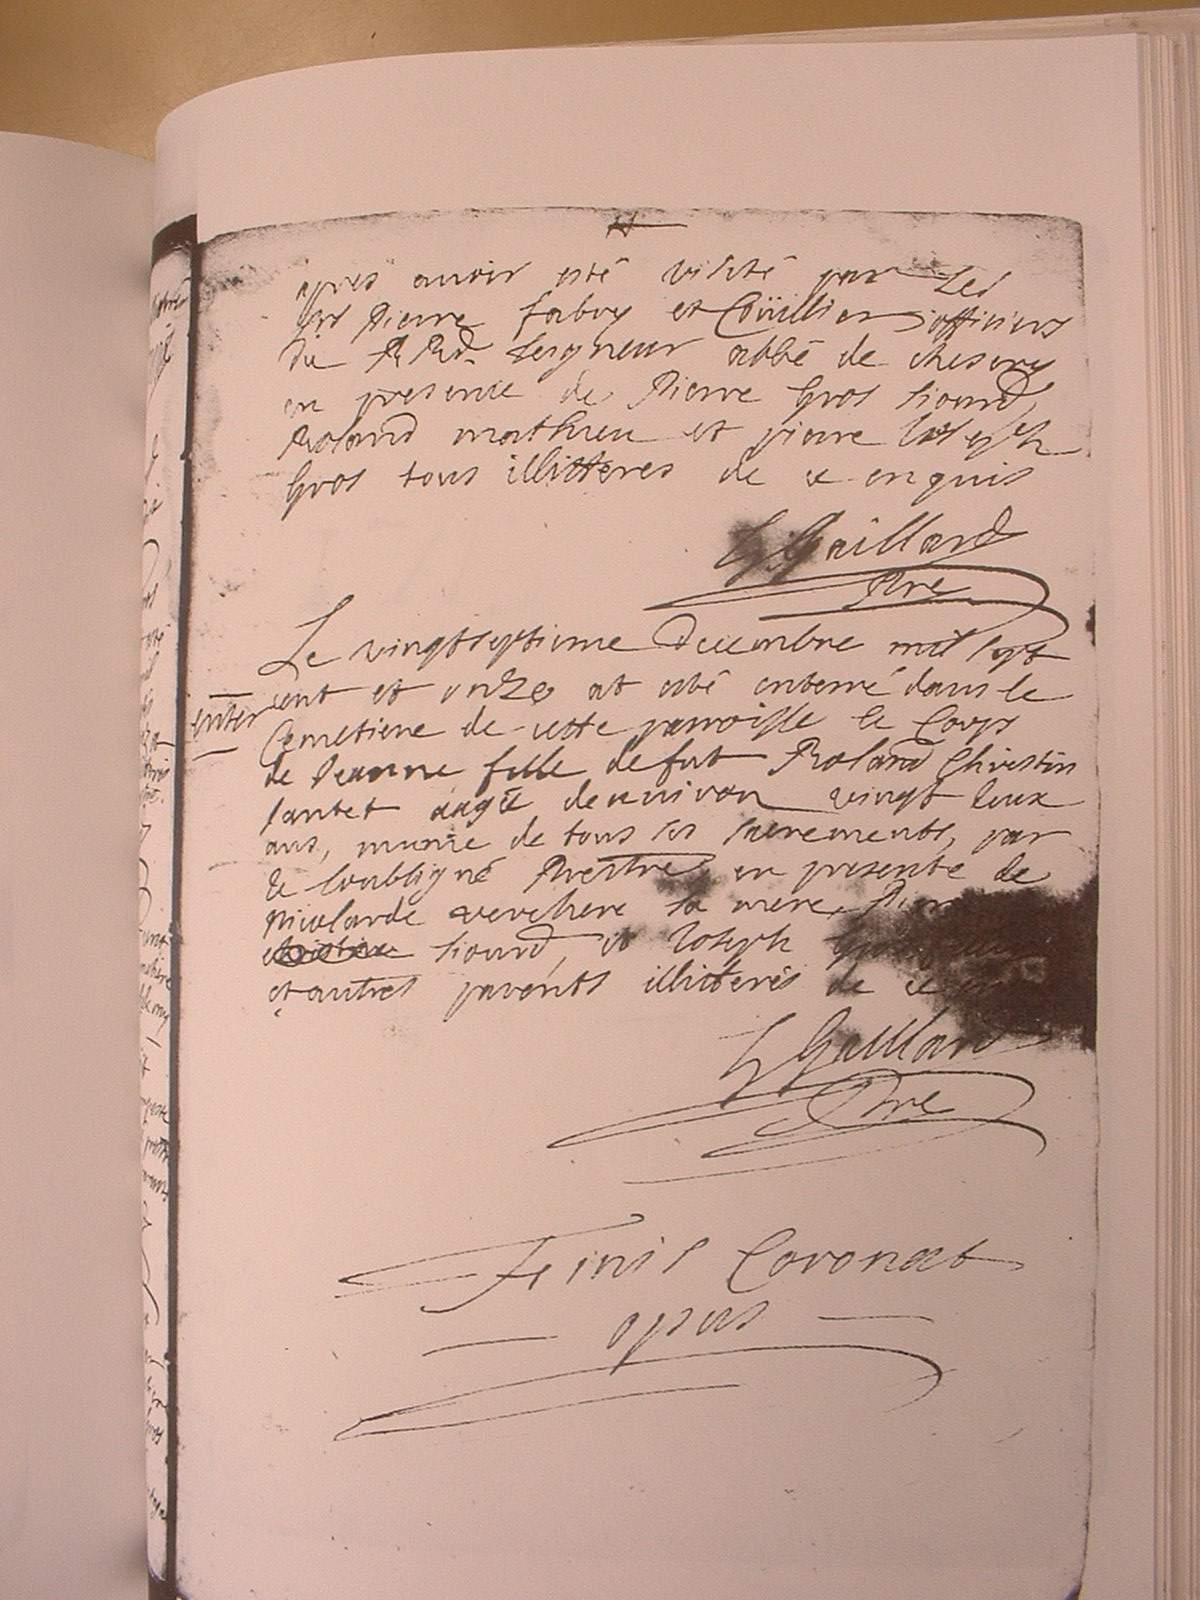 apres avoir esté visité par Les
Srs Pierre fabry et Coüillier officiers
du R Rd. Seigneur abbé de chesery
en presence de Pierre Gros Siourd,
Roland mathieu et pierre Joseph
Gros tous illitteres de ce enquis
G Gaillard
Pre
Le vingtseptieme decembre mil sept
cent et onze at esté enterré dans le
enter
Cemetiere de cette parroisse le Corps
de Jeanne fille de fut Roland Christin
tantet aagée denviron vingt deux
ans, munie de tous les sacrements, par
le soubsigné Prestre, en presente de
Nicolarde sa mere,
Siourd, et Joseph
et autres parents illitterés de ce
G Gaillard
Pre
Finis Coronat
opus